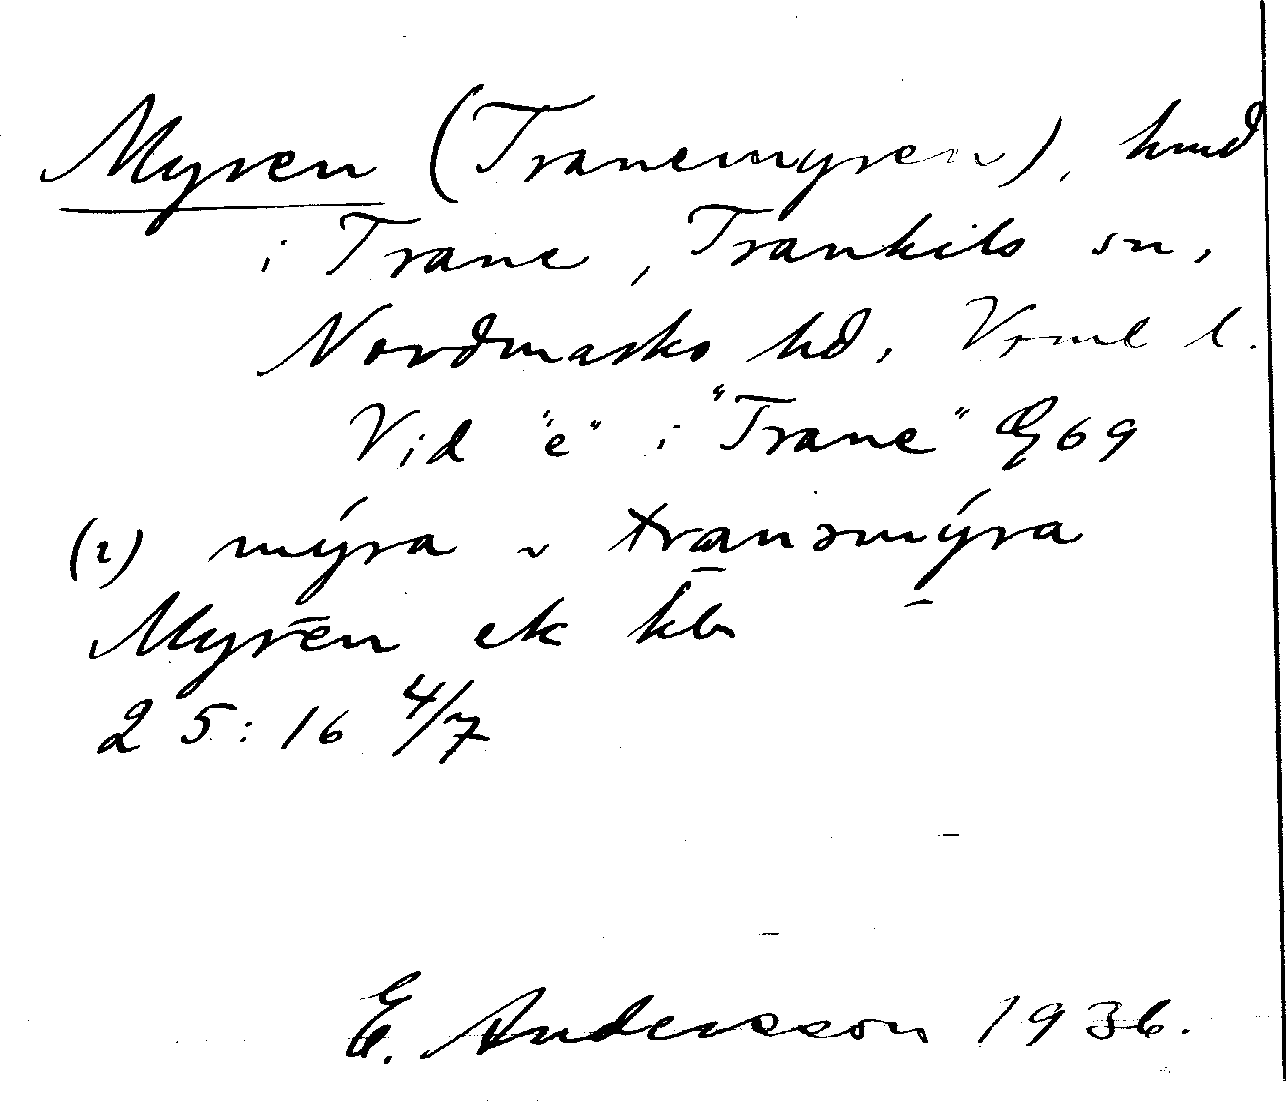 Myren (Tranemyren), hmd
i Trane, Trankils sn,
Nordmarks hd, Vrml l.
Vid "e" i "Trane" G 69
(i) mýra ~ tranəmýra
Myren ek kbr
25:16 4/7
E. Andersson 1936.